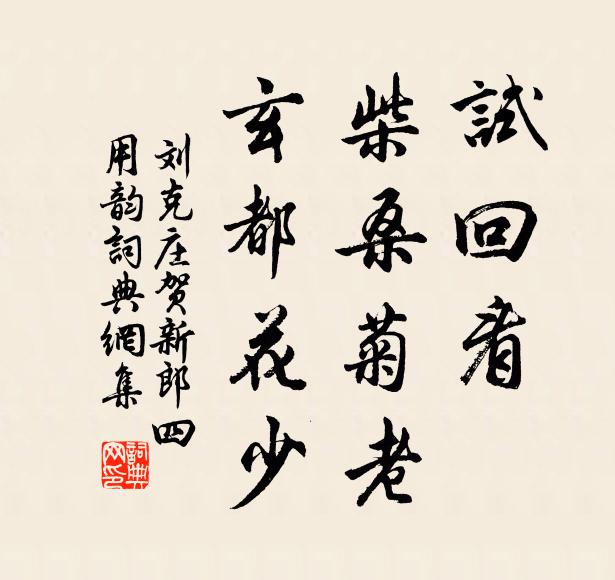 試回看
柴桑菊老
玄都花少
刘克庄贺新郎四
用韵詞典網集
詞典网印